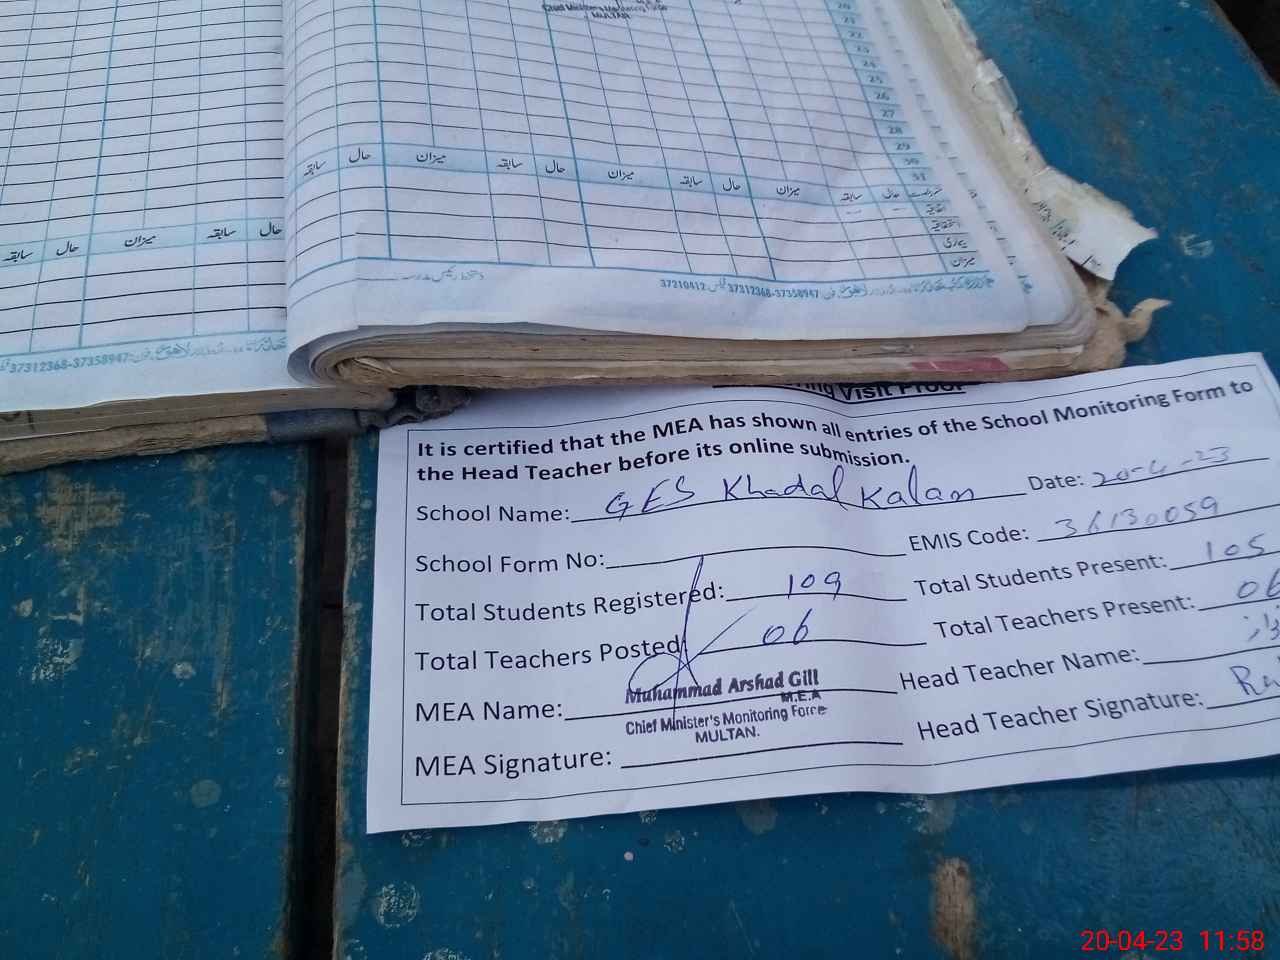 Chief Minister's Monitoring Force
MULTAN.
20
21
22
23
24
25
26
27
28
29
30
31
سابقہ حال میزان سابقہ حال میزان سابقہ حال میزان سابقہ حال
میزان
سابقہ حال میزان سابقہ حال
37210412 37312368-37358947
37312368-37358947
Visit Proof
It is certified that the MEA has shown all entries of the School Monitoring Form to
the Head Teacher before its online submission.
School Name: GES Khadal Kalan Date: 20-4-23
School Form No: EMIS Code: 36130059
Total Students Registered: 109 Total Students Present: 105
Total Teachers Posted: 06 Total Teachers Present: 06
Muhammad Arshad Gill
M.E.A
MEA Name: Head Teacher Name:
Chief Minister's Monitoring Force
MULTAN.
MEA Signature: Head Teacher Signature:
20-04-23 11:58